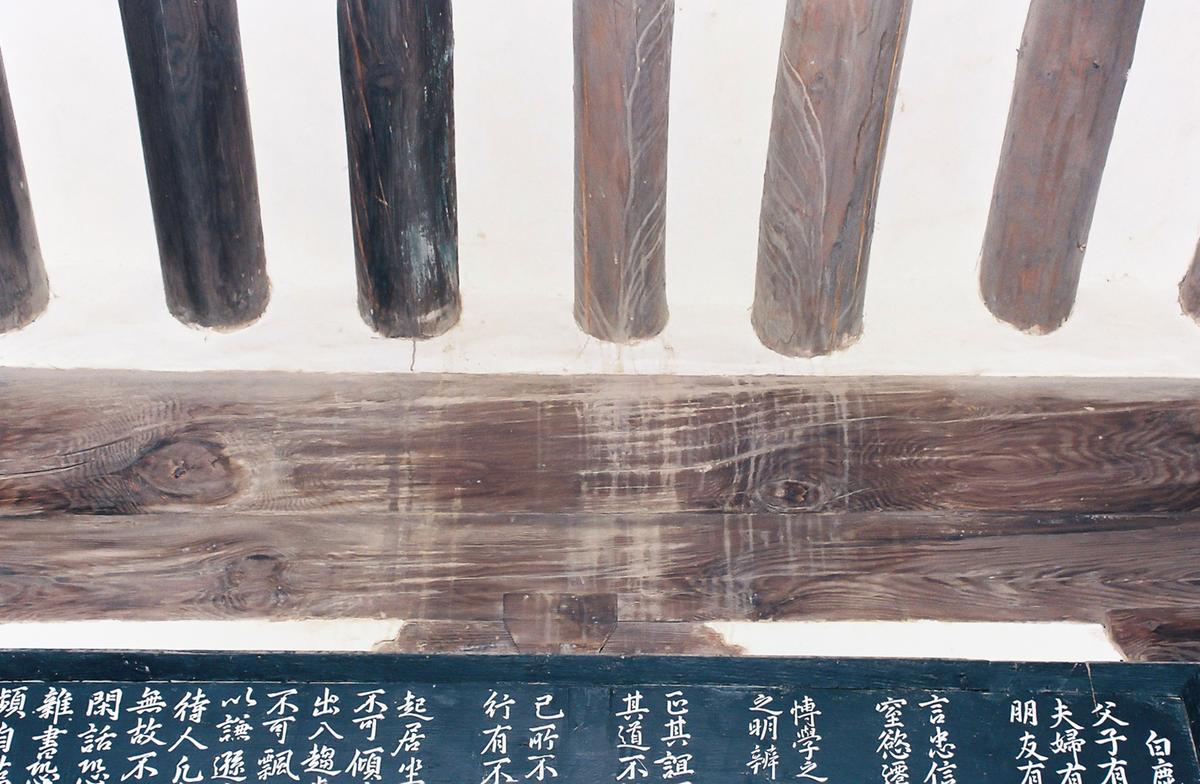 白鹿
父子有
夫婦有
朋友有
言忠信
窒慾遷
愽學之
之明辨
正其誼
其道不
己所不
行有不
起居坐
不可傾
出入趨
不可飄
以謙遜
待人凡
無故不
閑話恐
雜書恐
頻自